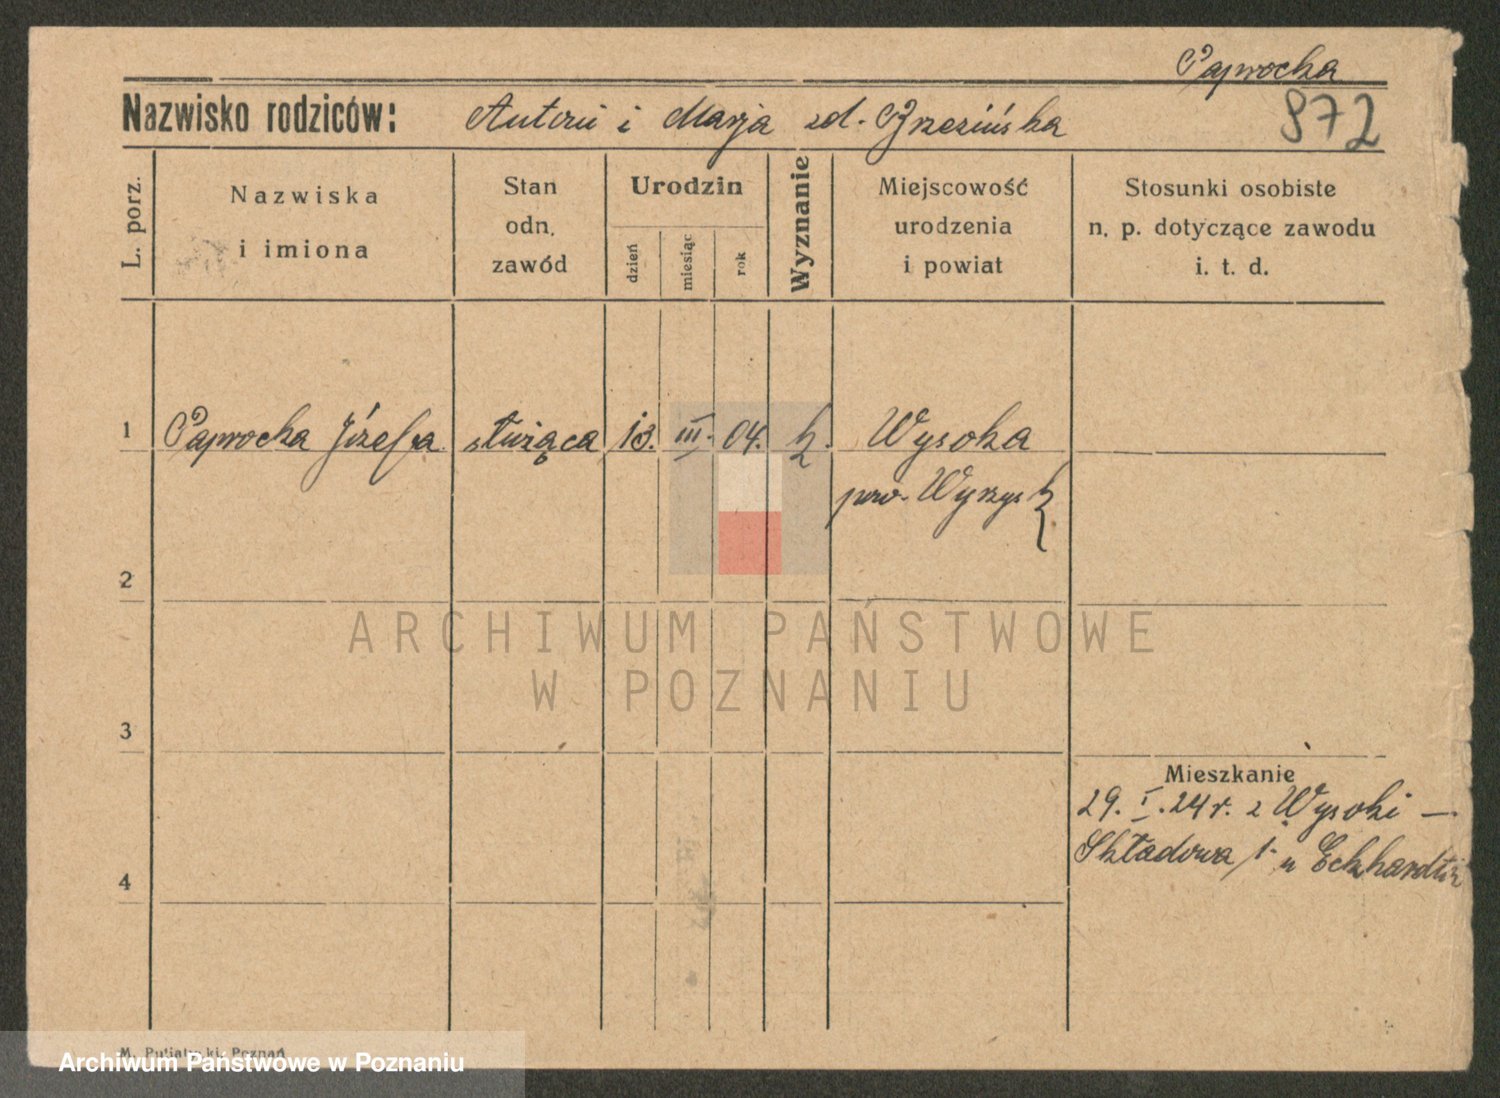 Paprocka
Nazwisko rodziców: Antoni i Marja zd. Brzezińska
872
L. porz.
Nazwiska
i imiona
Stan
odn.
zawód
Urodzin
dzień
miesiąc
rok
Wyznanie
Miejscowość
urodzenia
i powiat
Stosunki osobiste
n. p. dotyczące zawodu
i. t. d.
1 Paprocka Józefa służąca 13. III. 04. k. Wysoka
pow. Wyrzysk
2
ARCHIWUM PAŃSTWOWE
W POZNANIU
3
Mieszkanie
29. I. 24 r. z Wysoki —
Składowa 1 u Eckhardtów
4
M. Putiatycki, Poznań
Archiwum Państwowe w Poznaniu